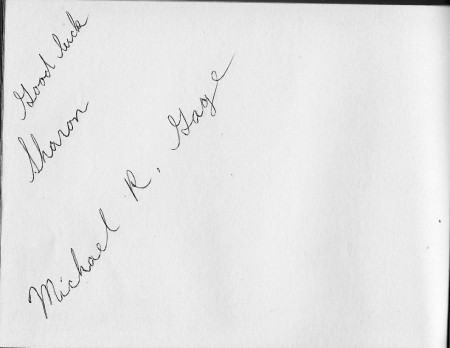 Good luck
Sharon
Michael R. Gage